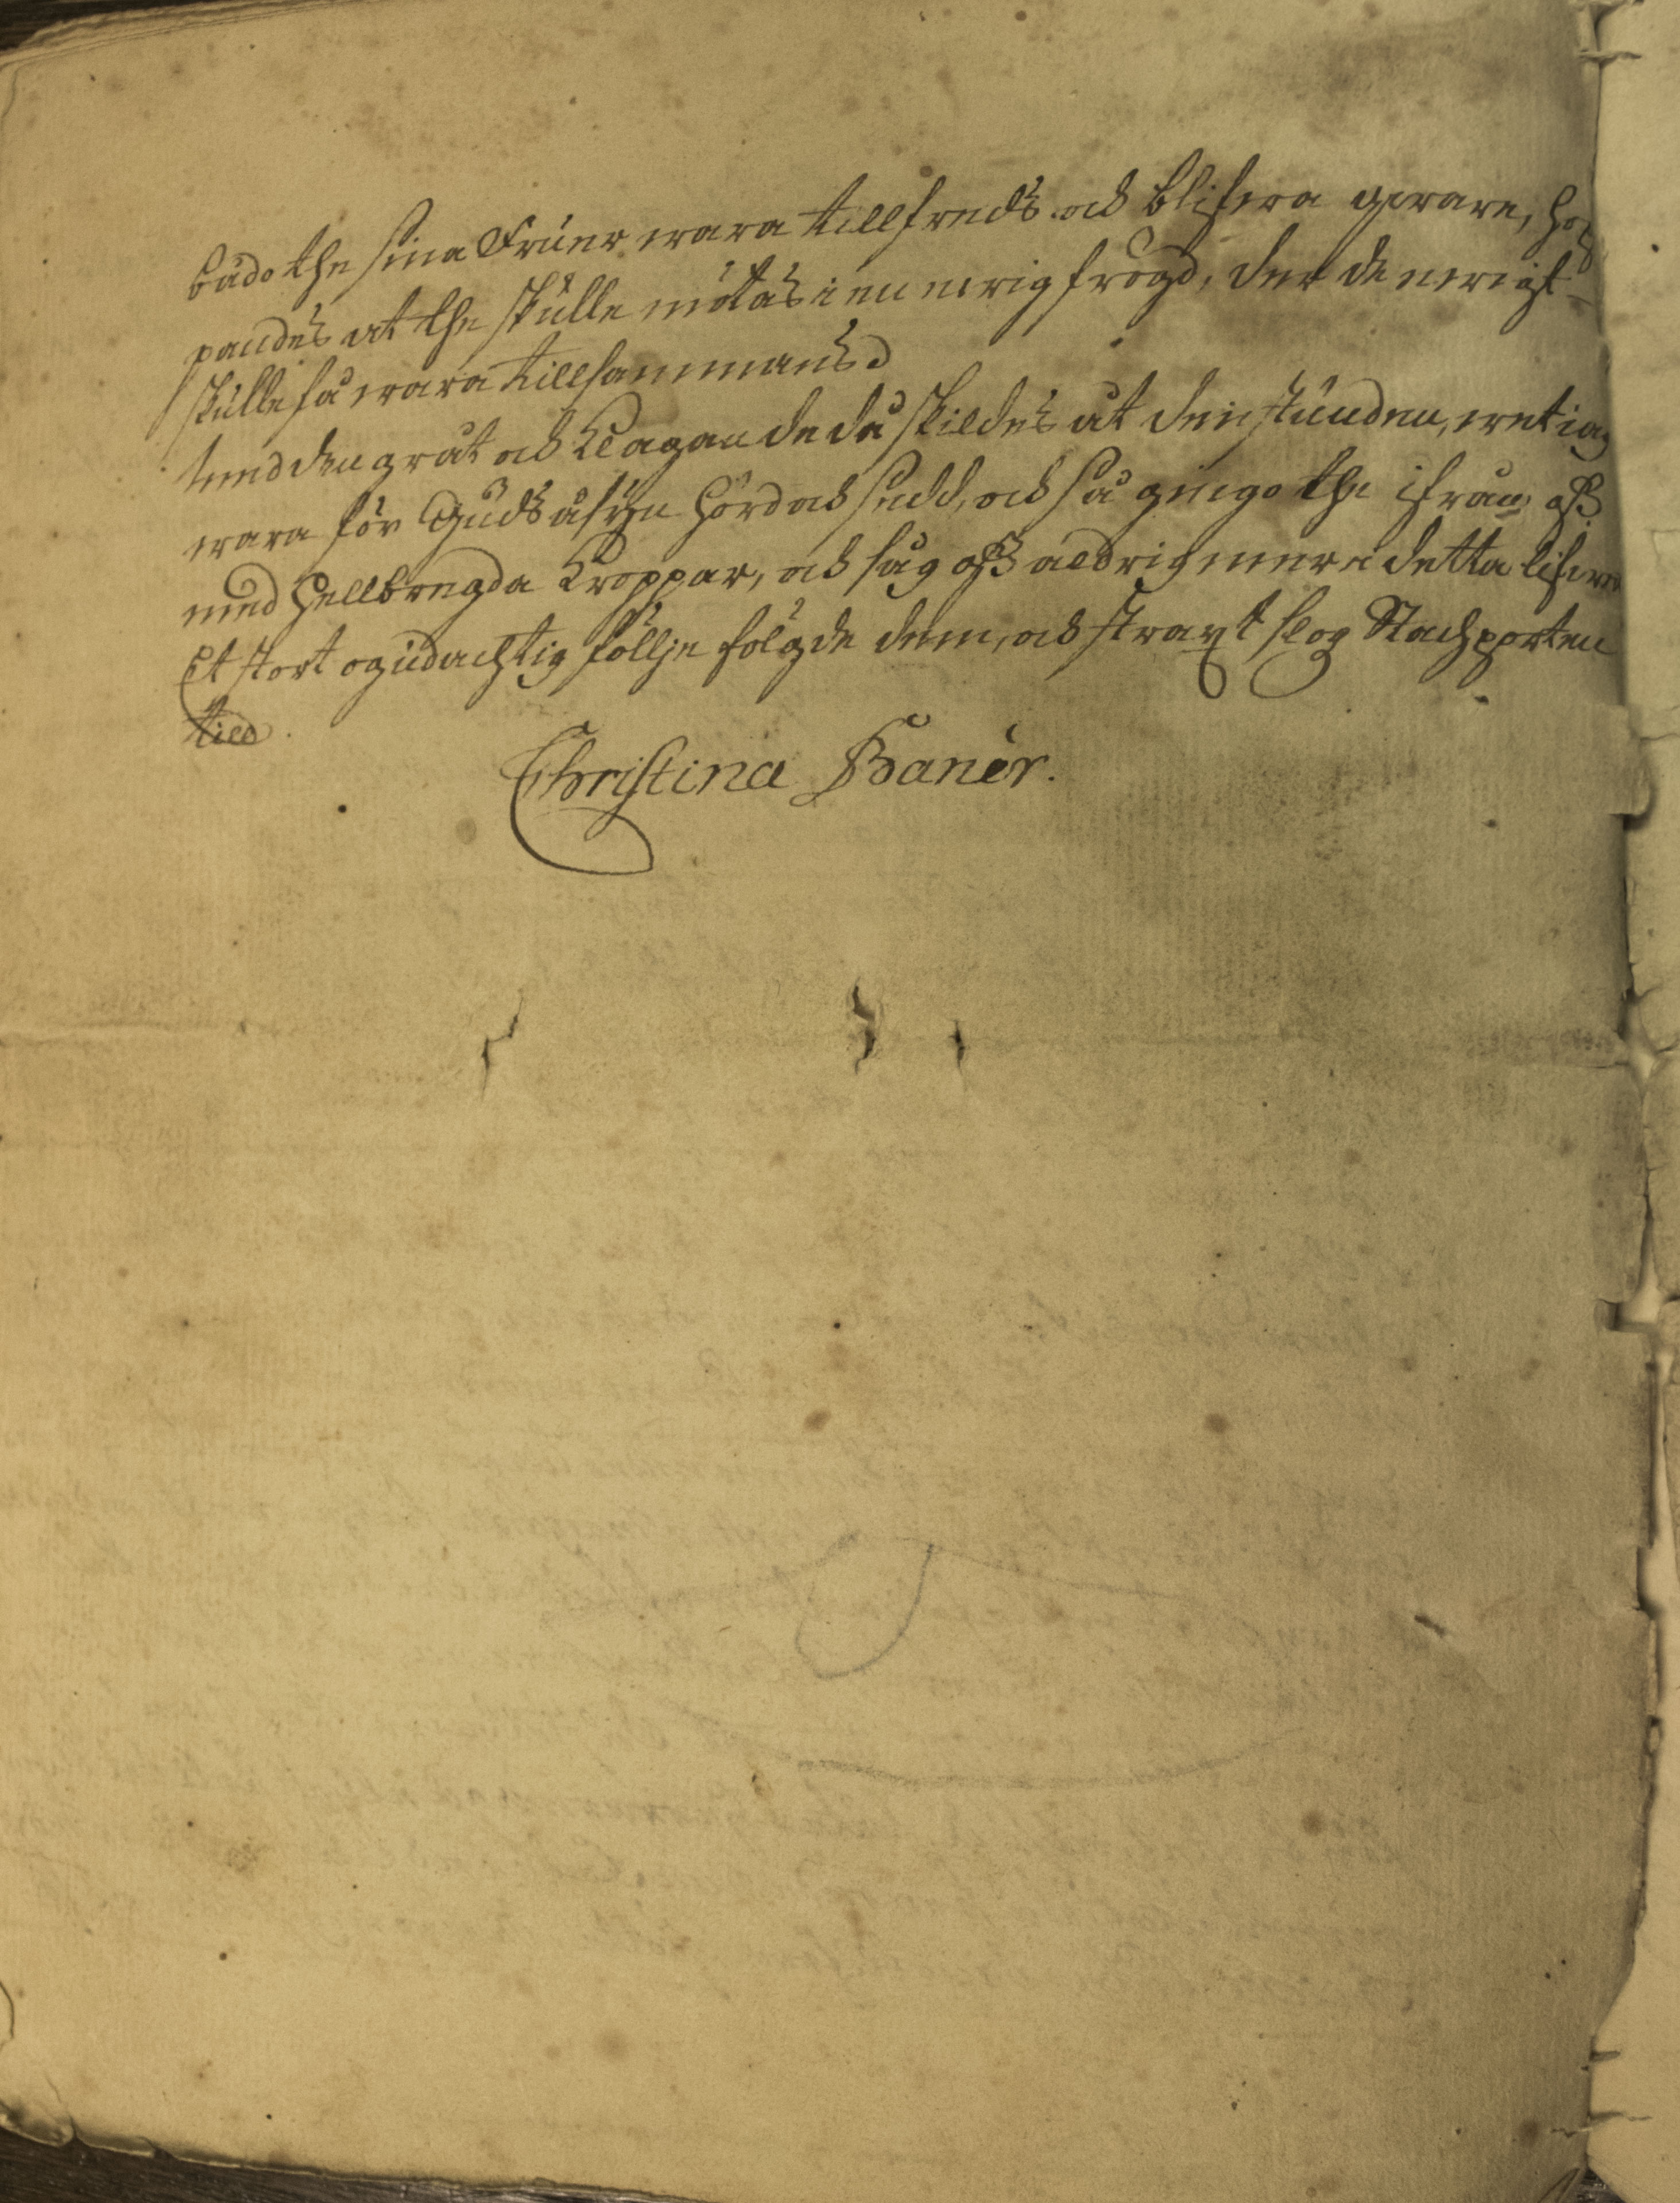 bådo the sina Früer wara tillfreds och blifwa qwara, hop
pandes at the skulle mötas i en ewig frögd, der de ewigt
skulle få wara tillsammans
med den gråt och klagande då skildes åt den stunden, wet iag
wara för Guds åsÿn hörd och sedd, och så gingo the ifrån oss
med hellbregda kroppar, och såg oss aldrig mera i detta lifwet
Et stort ogudachtig föllje fölgde dem, och straxt slog Stachporten
till.
Christina Banér.